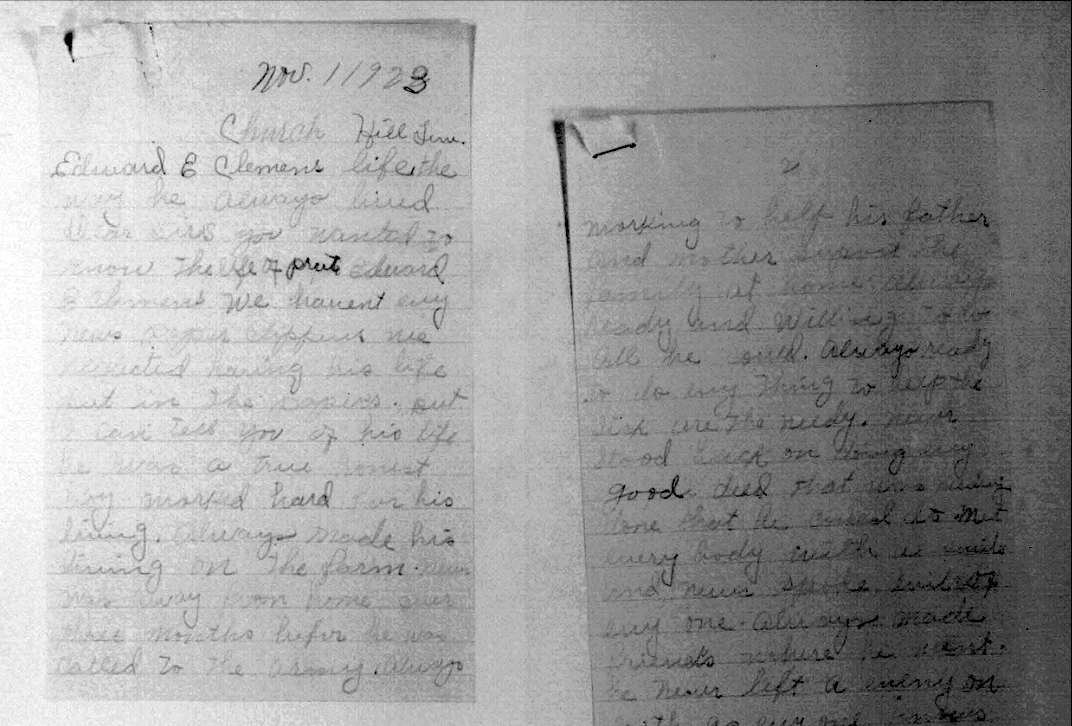 Nov. 1 1923
Church Hill Tenn.
Edward E Clemens life the
way he always lived
Dear sirs you wanted to
know the life of prut Edward
E Clemens We havent eny
news paper clippins we
neglected having his life
put in the papers. but
I can tell you of his life
he was a true honest
boy worked hard for his
living. Always made his
living on the farm never
was away from home over
three months befor he was
called to the army. Always
2
working to help his father
and mother support the
family at home. always
ready and willing to do
all he could. Always ready
to do eny thing to help the
sick are the needy. never
stood back on doing eny
good deed that was being
done that he could do met
every body with a smile
and never spoke evil of
eny one. Always made
friends where he went.
he never left a enemy on
as eny one